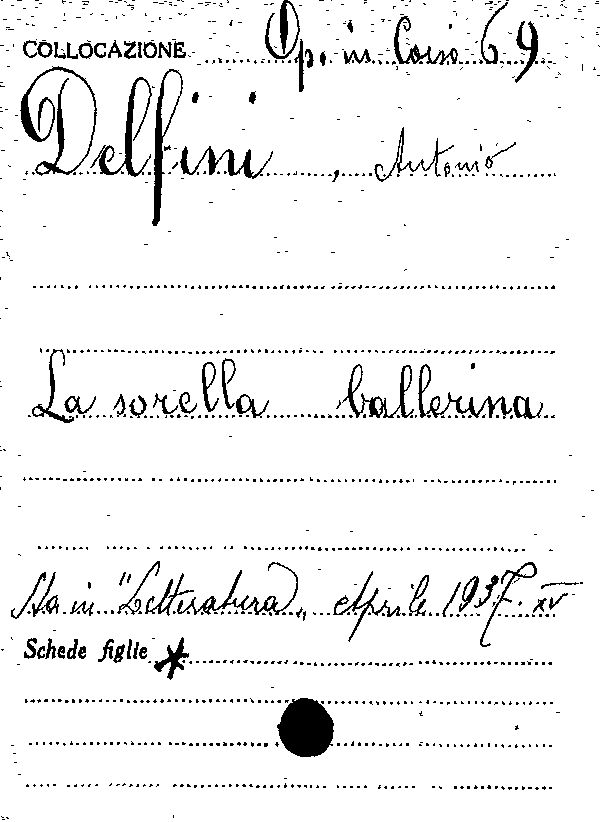 COLLOCAZIONE Op. in Corso 69
Delfini, Antonio
La sorella ballerina
Sta in "Letteratura", Aprile 1937. XV
Schede figlie *